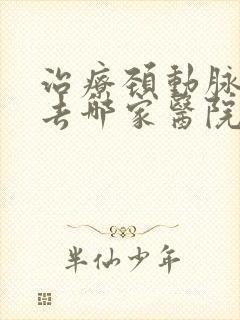 治療頚動脈
去哪家醫院
半仙少年